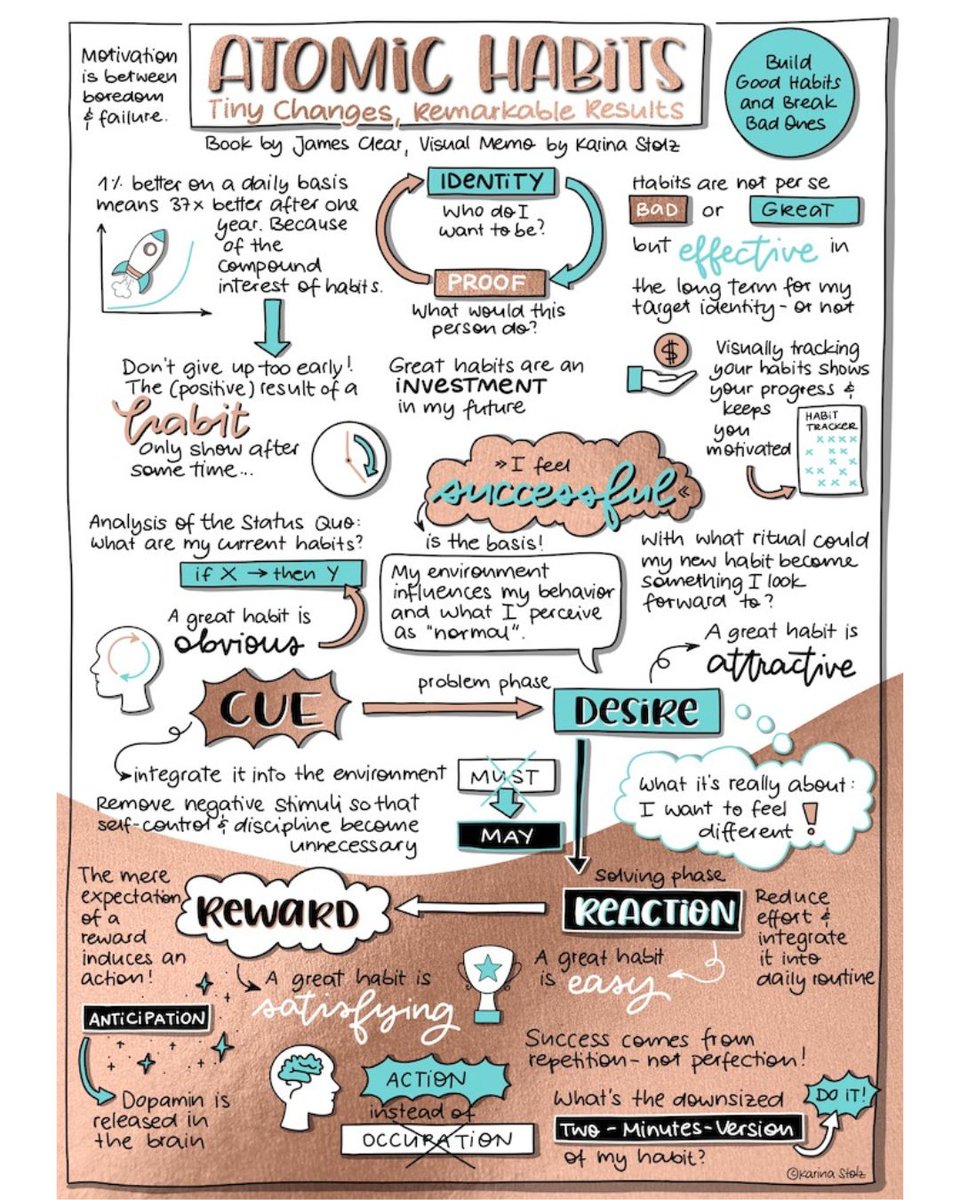 Motivation
is between
boredom
& failure.
ATOMIC HABITS
Tiny Changes, Remarkable Results
Build
Good Habits
and Break
Bad Ones
Book by James Clear, Visual Memo by Karina Stolz
1% better on a daily basis
means 37x better after one
year. Because
of the
compound
interest of habits.
IDENTITY
Who do I
want to be?
PROOF
What would this
person do?
Habits are not per se
BAD or GREAT
but effective in
the long term for my
target identity - or not
Don't give up too early!
The (positive) result of a
habit
Only show after
some time...
Great habits are an
INVESTMENT
in my future
$
Visually tracking
your habits shows
your progress &
keeps
you
motivated
HABIT
TRACKER
x x x x
x x x
x x
x x x
x x
»I feel
successful«
is the basis!
Analysis of the Status Quo:
What are my current habits?
if X → then Y
A great habit is
obvious
My environment
influences my behavior
and what I perceive
as "normal".
With what ritual could
my new habit become
something I look
forward to?
A great habit is
attractive
CUE
problem phase
DESIRE
integrate it into the environment
Remove negative stimuli so that
self-control & discipline become
unnecessary
MUST
MAY
What it's really about:
I want to feel
different!
The mere
expectation
of a
reward
induces an
action!
REWARD
solving phase
REACTION
Reduce
effort &
integrate
it into
daily routine
A great habit is
satisfying
A great habit
is easy
ANTICIPATION
Dopamin is
released in
the brain
Success comes from
repetition - not perfection!
ACTION
instead of
OCCUPATION
What's the downsized
Two-Minutes-Version
of my habit?
DO IT!
©Karina Stolz